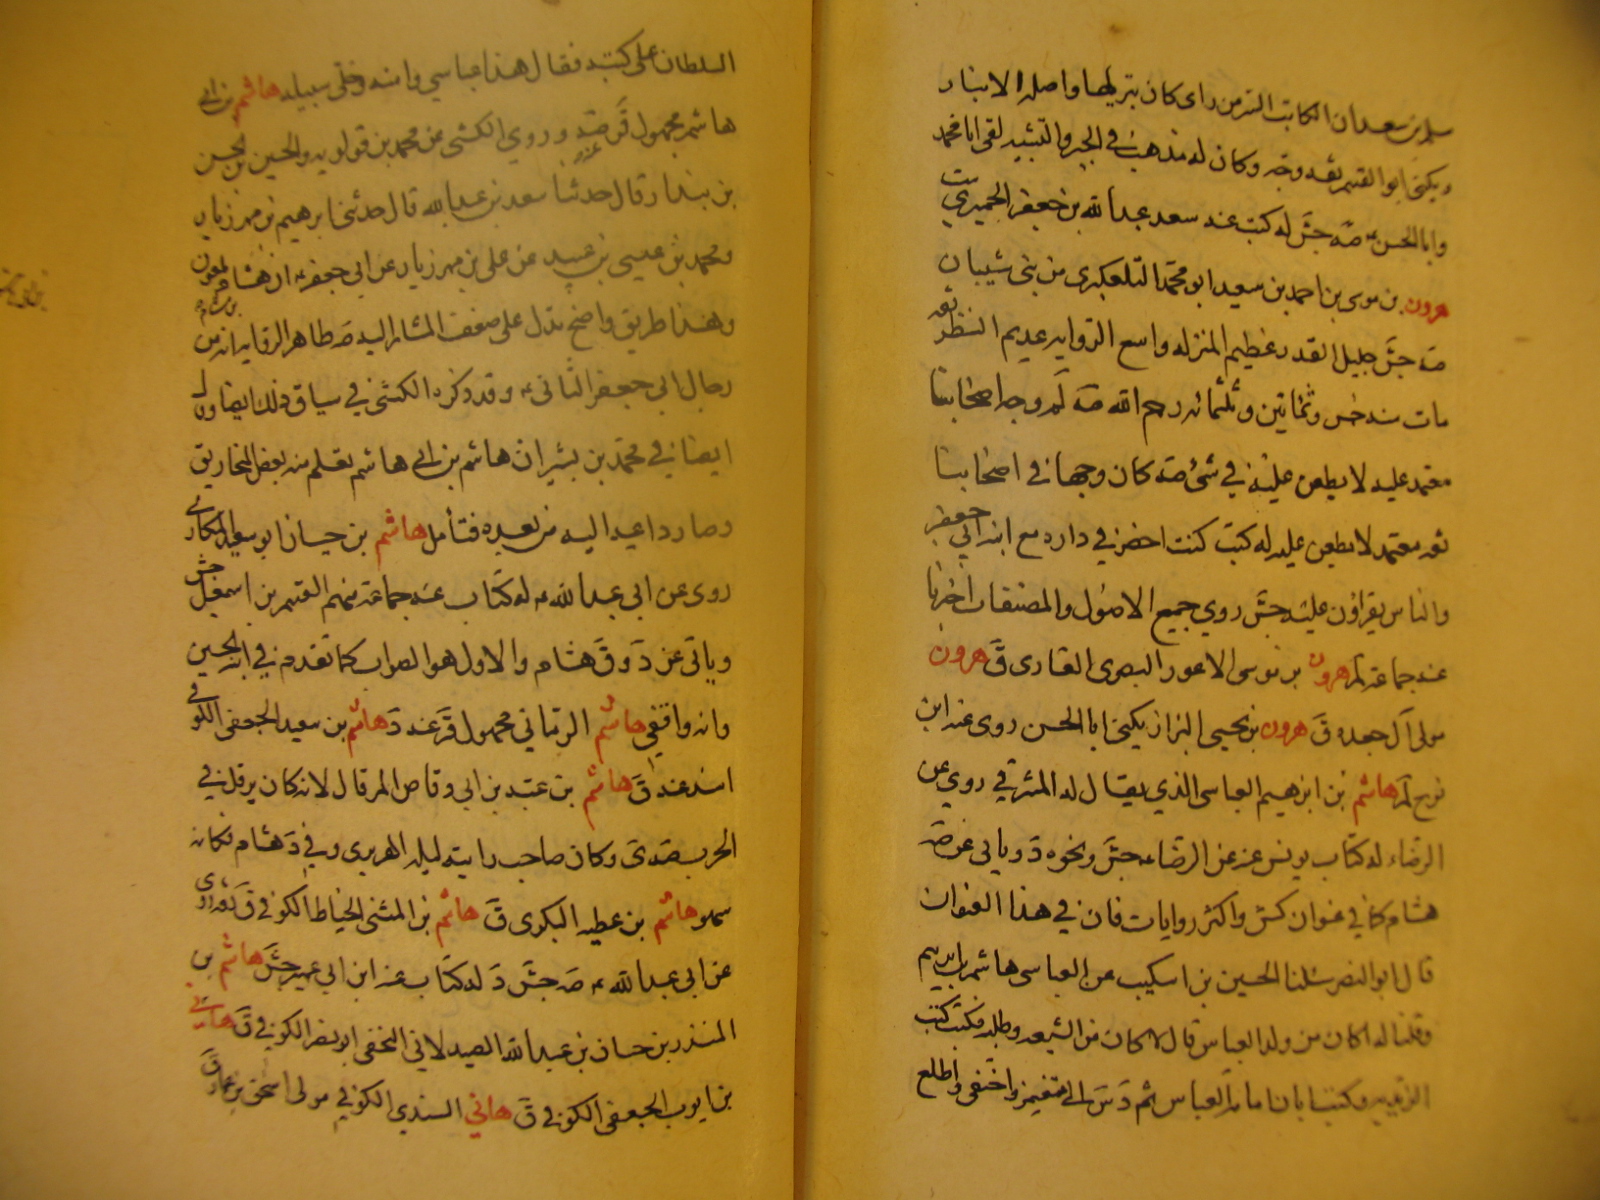 مسلم بن سعدان الكاتب السر من راى كان نزيلها واصله الانبار
ويكنى ابو القسم ثقه وجه وكان له مذهب في الجبر والتشبيه لقى ابا محمد
وابا الحسن ع صه جش له كتب عنه سعد عبد الله بن جعفر الحميري ست
هرون بن موسى بن احمد بن سعيد ابو محمد التلعكبرى من بنى شيبان
صه جش جليل القدر عظيم المنزله واسع الروايه عديم النظر ثقه
مات سنه خمس وثمانين وثلثمائه رحمه الله صه لم وجه اصحابنا
معتمد عليه لا يطعن عليه في شئ صه كان وجها في اصحابنا
ثقه معتمد لا يطعن عليه له كتب كنت احضر في داره مع ابنه ابي جعفر
والناس يقراؤن عليه جش روي جميع الاصول والمصنفات اخبرنا
عنه جماعة لم هرون بن موسى الاعور البصرى القارى ق هرون
مولى آل جعده ق هرون بن يحيى البزاز يكنى ابا الحسن روى عنه ابن
نوح لم هاشم بن ابرهيم العباسى الذي يقال له المشرقي روي عن
الرضاء له كتاب يونس عنه عن الرضاء جش ونحوه د وياتي عن صه
هشام كما في عنوان كش واكثر روايات فان في هذا العنوان
قال ابو النصر سئلنا الحسين بن اسكيب عن العباسى هاشم بن ابرهيم
وقلنا له اكان من ولد العباس قال لا كان من الشيعه وطلبه فكتب كتب
الزيديه وكتب اثبات امامة العباس ثم دس الى من يغمز به واختفى واطلع
السلطان على كتبه فقال هذا عباسي وامنه وخلى سبيله هاشم بن ابى
هاشم مجهول قر صه د وروي الكشى عن محمد بن قولويه والحسين بن الحسن
بن بندار قال حدثنا سعد بن عبد الله قال حدثنى ابرهيم بن مهزيار
ومحمد بن عيسى بن عبيد عن علي بن مهزيار عن ابي جعفر ع ان هشام ملعون
وهذا طريق واضح يدل على ضعف المشار اليه صه ظاهر الروايه انه من
رجال ابي جعفر الثاني ع وقد ذكره الكشى في سياق ذلك ايضا
ايضا في محمد بن بشير ان هاشم بن ابى هاشم تعلم منه بعض المخاريق
وصار داعيه اليه من بعده فتأمل هاشم بن حيان ابو سعيد المكارى
روى عن ابي عبد الله ع له كتاب عنه جماعة منهم القسم بن اسمعيل جش
وياتى عن د وق هشام والاول هو الصواب كما تقدم في ابنه الحسين
وانه واقفى هاشم الرماني مجهول قر عند د هاشم بن سعيد الجعفى الكوفي
اسند عنه ق هاشم بن عتبه بن ابي وقاص المرقال لانه كان يرقل في
الحرب صه ى وكان صاحب رايته ليله الهرير ى وفي د هشام وكانه
سهو هاشم بن عطيه البكرى ق هاشم بن المثنى الحناط الكوفي ق ثقه روى
عن ابي عبد الله ع صه جش د له كتاب عنه ابن ابي عمير جش هاشم بن
المنذر بن حسان بن عبد الله الصيدلاني النخعى ابو نصر الكوفي ق هاني
بن ايوب الجعفى الكوفي ق هاني السندي الكوفي مولى اسحق بن عمار ق